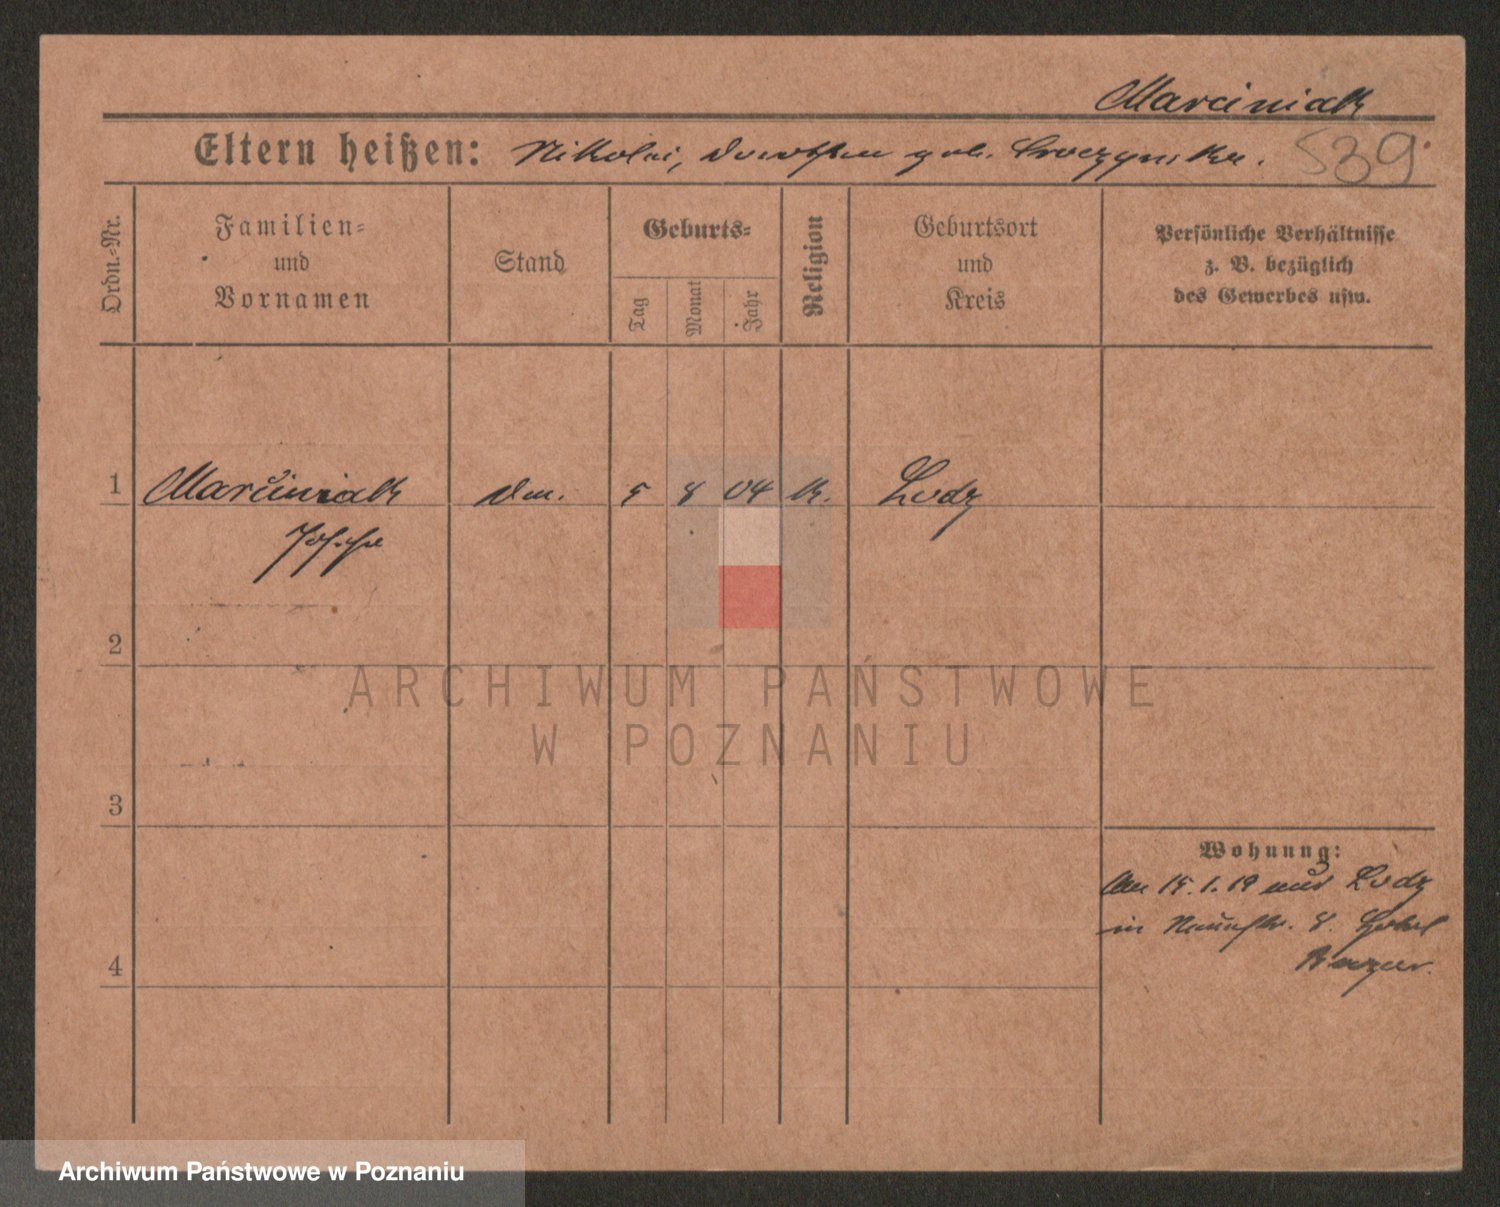 Marciniak
Eltern heißen: Nikolai, geb.
539
Ordn.-Nr.
Familien-
und
Vornamen
Stand
Geburts-
Tag
Monat
Jahr
Religion
Geburtsort
und
Kreis
Persönliche Verhältnisse
z. B. bezüglich
des Gewerbes usw.
1 Marciniak 5 8 04 k. Lodz
2
3
4
Wohnung:
Am 15.1.19 aus Lodz
in 8. Hotel
Bazar.
ARCHIWUM PAŃSTWOWE
W POZNANIU
Archiwum Państwowe w Poznaniu